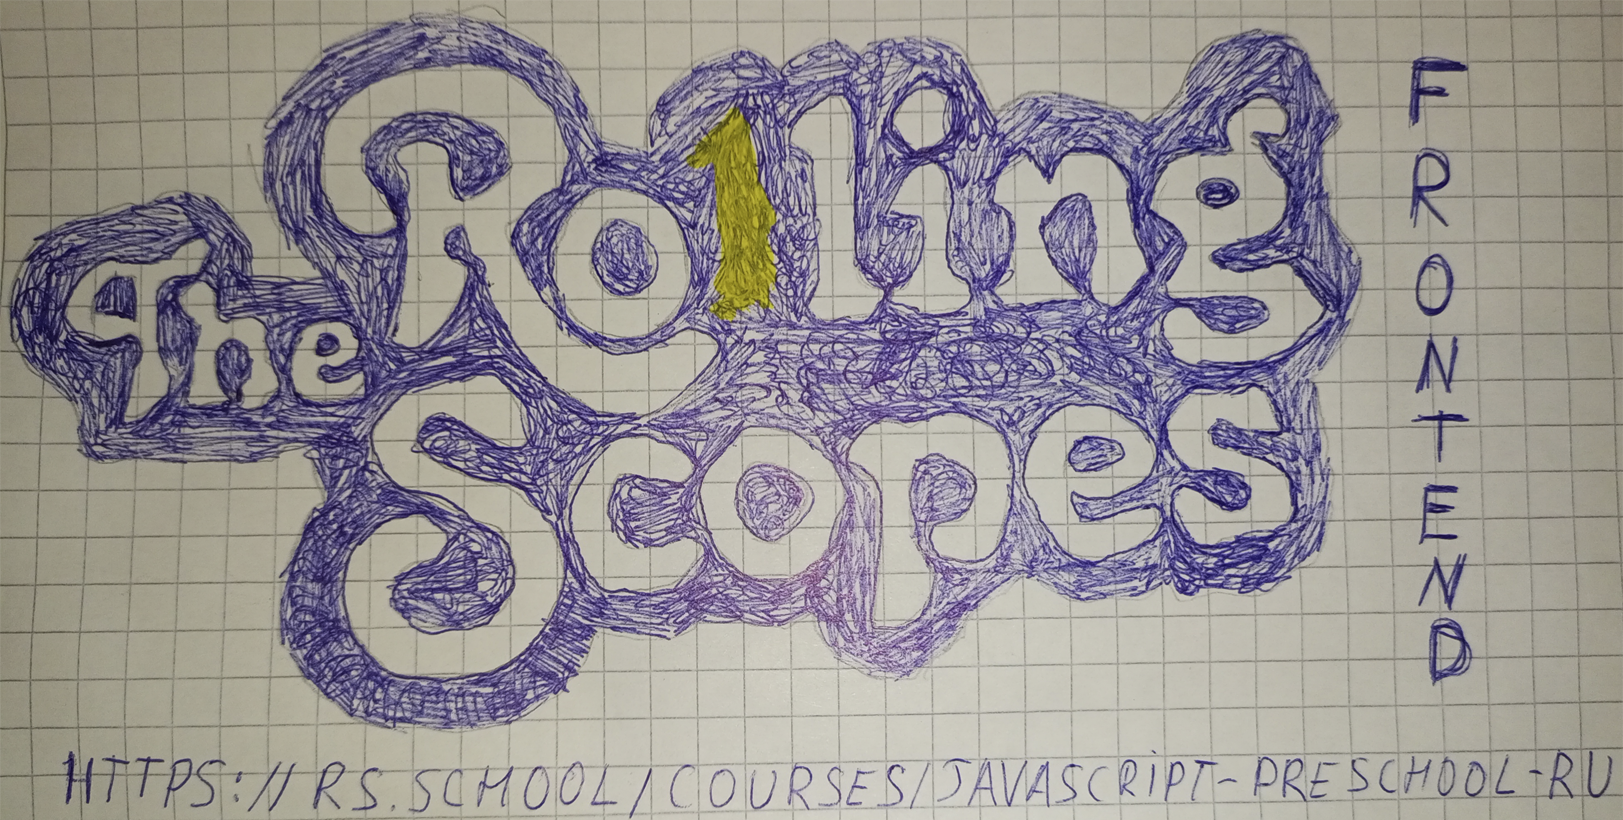 The
Ro1ling
Scopes
FRONTEND
HTTPS://RS.SCHOOL/COURSES/JAVASCRIPT-PRESCHOOL-RU